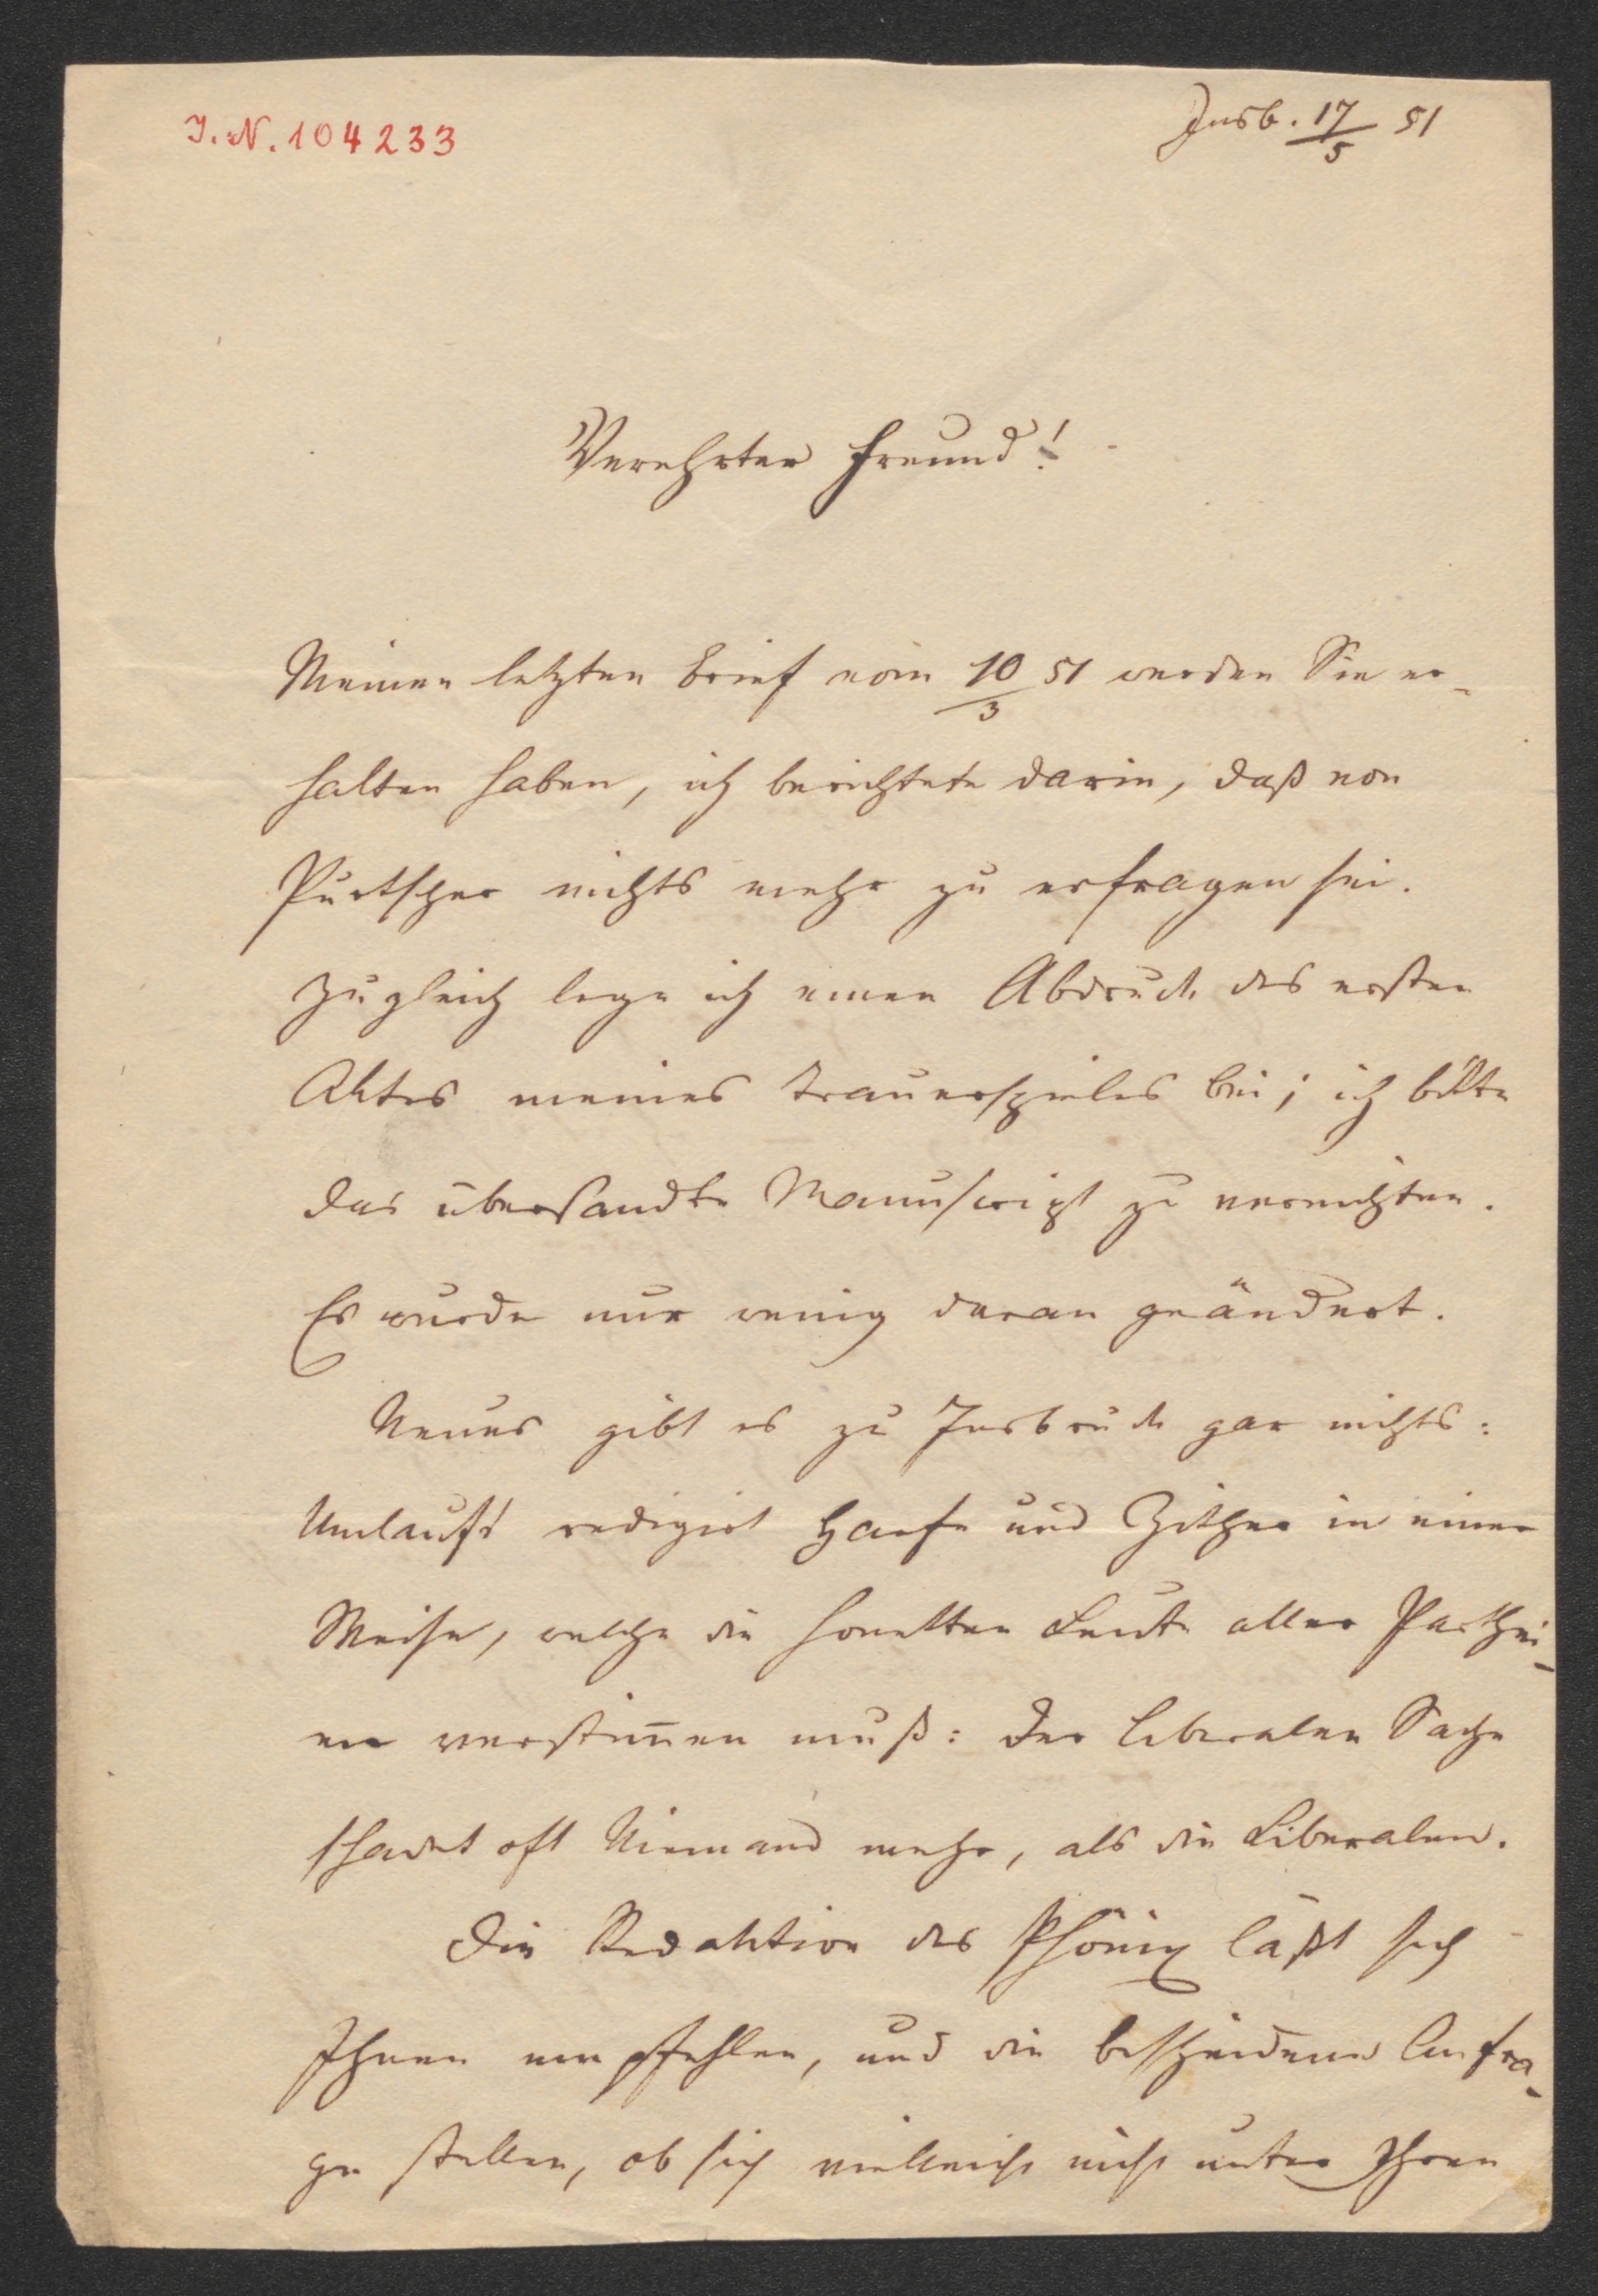 I. N. 104233
Insb. 17/5 51
Verehrter Freund!
Meinen letzten Brief vom 10/3 51 werden Sie er-
halten haben, ich berichtete darin, daß von
Purtscher nichts mehr zu erfragen sei.
Zugleich lege ich einen Abdruck des ersten
Aktes meines Trauerspieles bei; ich bitte
das übersandte Manuscript zu vernichten.
Es wurde nur wenig daran geändert.
Neues gibt es zu Insbruck gar nichts:
Umlauft redigirt Harfe und Zither in einer
Weise, welche die honetten Leute aller Parthei-
en verstim̅en muß: der liberalen Sache
schadet oft Niemand mehr, als die Liberalen.
Die Redaktion des Phönix läßt sich
Ihnen empfehlen, und die bescheidene Anfra-
ge stellen, ob sich vielleicht nicht unter Ihren